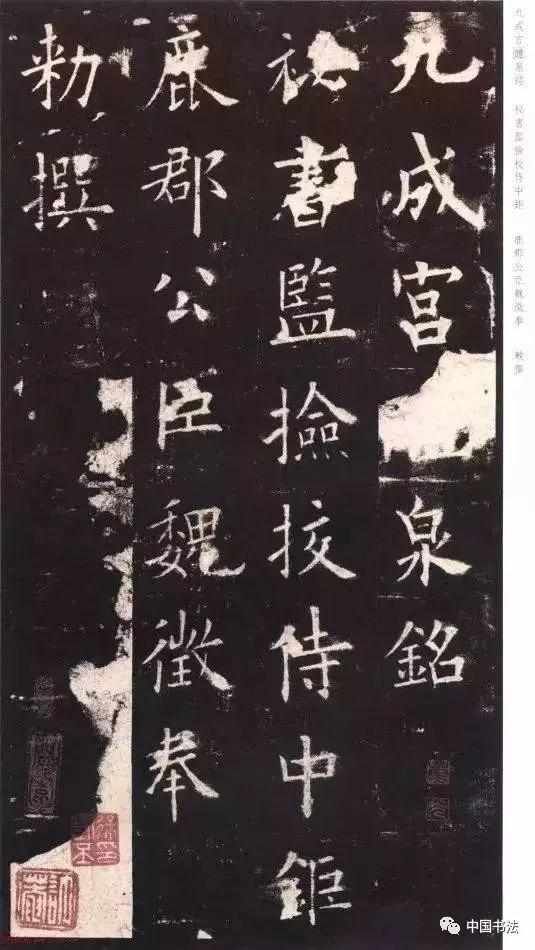 九成宮泉銘
秘書監撿挍侍中鉅
鹿郡公臣魏徵奉
勑撰
九成宫醴泉銘 秘書監撿校侍中鉅 鹿郡公臣魏徵奉 敕撰
中国书法